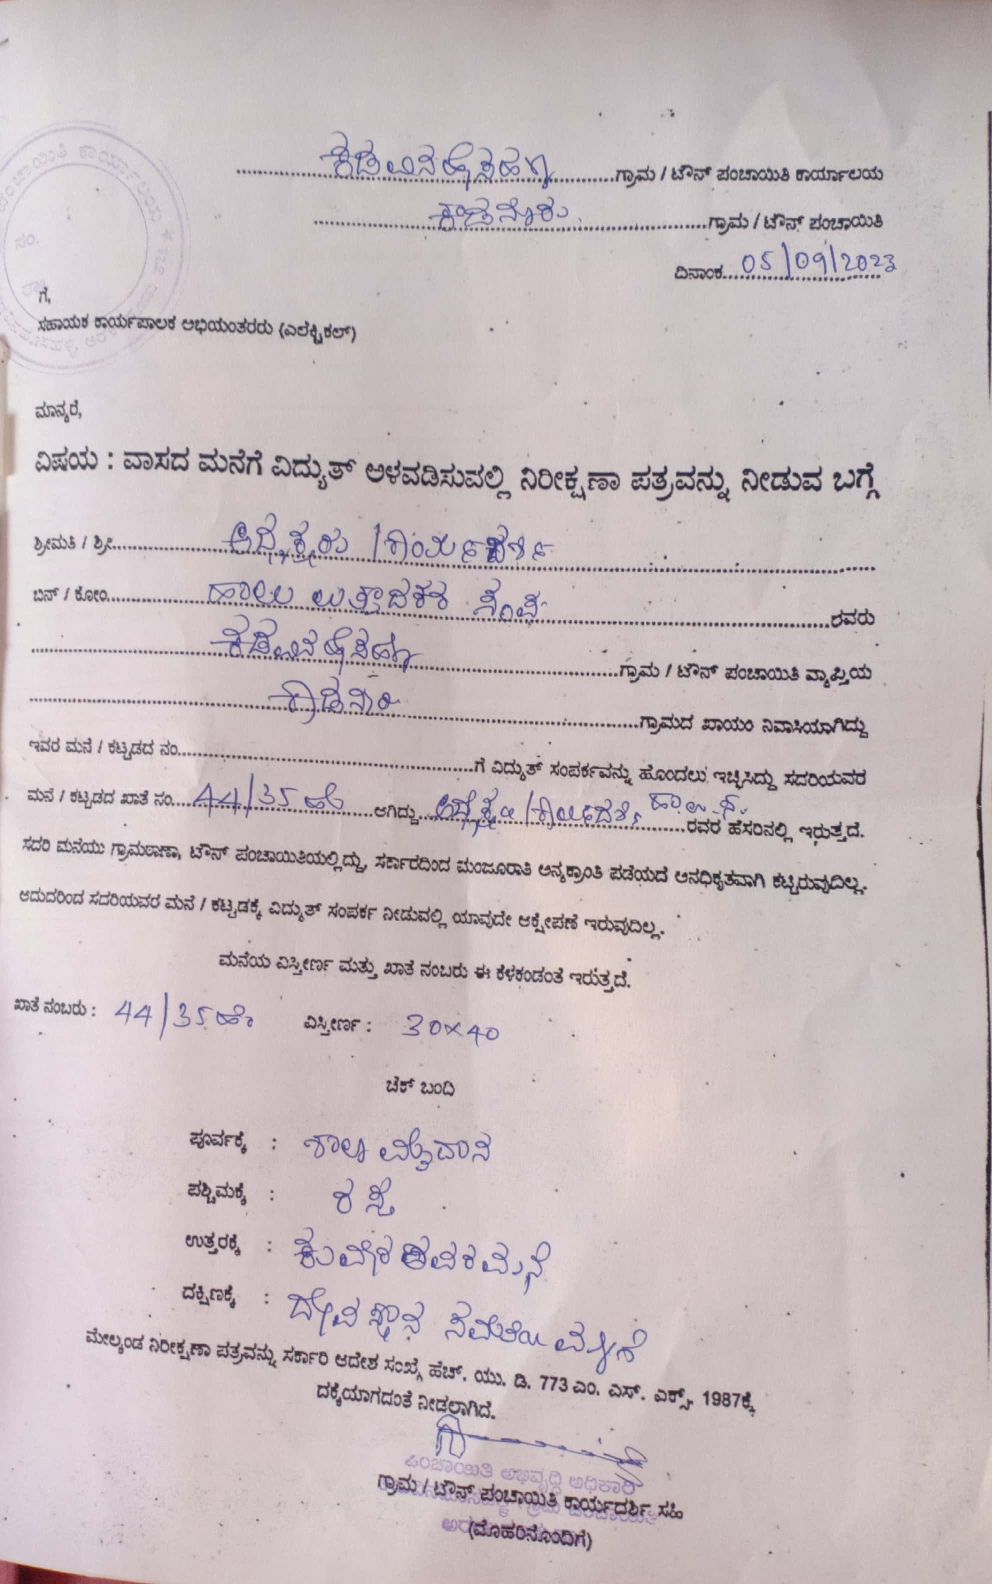 ಗ್ರಾಮ / ಟೌನ್ ಪಂಚಾಯಿತಿ ಕಾರ್ಯಾಲಯ
ಗ್ರಾಮ / ಟೌನ್ ಪಂಚಾಯಿತಿ
ದಿನಾಂಕ 05/09/2023
ಗೆ,
ಸಹಾಯಕ ಕಾರ್ಯಪಾಲಕ ಅಭಿಯಂತರರು (ಎಲೆಕ್ಟ್ರಿಕಲ್)
ಮಾನ್ಯರೆ,
ವಿಷಯ : ವಾಸದ ಮನೆಗೆ ವಿದ್ಯುತ್ ಅಳವಡಿಸುವಲ್ಲಿ ನಿರೀಕ್ಷಣಾ ಪತ್ರವನ್ನು ನೀಡುವ ಬಗ್ಗೆ
ಶ್ರೀಮತಿ / ಶ್ರೀ ಅಧ್ಯಕ್ಷರು / ಕಾರ್ಯದರ್ಶಿ
ಬಿನ್ / ಕೋಂ ಹಾಲು ಉತ್ಪಾದಕರ ಸಂಘ ರವರು
ಗ್ರಾಮ / ಟೌನ್ ಪಂಚಾಯಿತಿ ವ್ಯಾಪ್ತಿಯ
ಗ್ರಾಮದ ಖಾಯಂ ನಿವಾಸಿಯಾಗಿದ್ದು
ಇವರ ಮನೆ / ಕಟ್ಟಡದ ನಂ. ಗೆ ವಿದ್ಯುತ್ ಸಂಪರ್ಕವನ್ನು ಹೊಂದಲು ಇಚ್ಛಿಸಿದ್ದು ಸದರಿಯವರ
ಮನೆ / ಕಟ್ಟಡದ ಖಾತೆ ನಂ. 44/35 ಆಗಿದ್ದು ಅಧ್ಯಕ್ಷರು / ಕಾರ್ಯದರ್ಶಿ ಹಾಲು ರವರ ಹೆಸರಿನಲ್ಲಿ ಇರುತ್ತದೆ.
ಸದರಿ ಮನೆಯು ಗ್ರಾಮಠಾಣಾ, ಟೌನ್ ಪಂಚಾಯಿತಿಯಲ್ಲಿದ್ದು, ಸರ್ಕಾರದಿಂದ ಮಂಜೂರಾತಿ ಅನ್ಯಕ್ರಾಂತಿ ಪಡೆಯದೆ ಅನಧಿಕೃತವಾಗಿ ಕಟ್ಟಿರುವುದಿಲ್ಲ.
ಆದುದರಿಂದ ಸದರಿಯವರ ಮನೆ / ಕಟ್ಟಡಕ್ಕೆ ವಿದ್ಯುತ್ ಸಂಪರ್ಕ ನೀಡುವಲ್ಲಿ ಯಾವುದೇ ಆಕ್ಷೇಪಣೆ ಇರುವುದಿಲ್ಲ.
ಮನೆಯ ವಿಸ್ತೀರ್ಣ ಮತ್ತು ಖಾತೆ ನಂಬರು ಈ ಕೆಳಕಂಡಂತೆ ಇರುತ್ತದೆ.
ಖಾತೆ ನಂಬರು : 44/35 ವಿಸ್ತೀರ್ಣ : 30×40
ಚೆಕ್ ಬಂದಿ
ಪೂರ್ವಕ್ಕೆ : ಶಾಲಾ ಮೈದಾನ
ಪಶ್ಚಿಮಕ್ಕೆ : ರಸ್ತೆ
ಉತ್ತರಕ್ಕೆ : ಮನೆ
ದಕ್ಷಿಣಕ್ಕೆ : ದೇವಸ್ಥಾನ
ಮೇಲ್ಕಂಡ ನಿರೀಕ್ಷಣಾ ಪತ್ರವನ್ನು ಸರ್ಕಾರಿ ಆದೇಶ ಸಂಖ್ಯೆ ಹೆಚ್. ಯು. ಡಿ. 773 ಎಂ. ಎಸ್. ಎಕ್ಸ್. 1987ಕ್ಕೆ
ದಕ್ಕೆಯಾಗದಂತೆ ನೀಡಲ್ಪಾಗಿದೆ.
ಪಂಚಾಯಿತಿ ಅಭಿವೃದ್ಧಿ ಅಧಿಕಾರಿ
ಗ್ರಾಮ / ಟೌನ್ ಪಂಚಾಯಿತಿ ಕಾರ್ಯದರ್ಶಿ ಸಹಿ
(ಮೊಹರಿನೊಂದಿಗೆ)